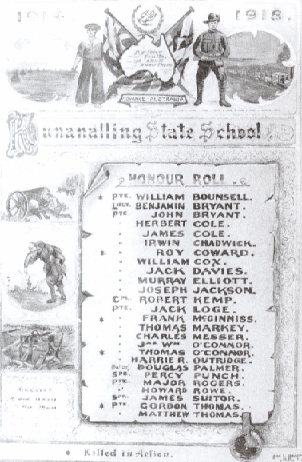 1914. 1918.
ADVANCE AUSTRALIA
Kunanalling State School
HONOUR ROLL
* PTE. WILLIAM BOUNSELL.
BENJAMIN BRYANT.
PTE. JOHN BRYANT.
" HERBERT COLE.
" JAMES COLE.
" IRWIN CHADWICK.
" ROY COWARD.
" WILLIAM COX.
" JACK DAVIES.
" MURRAY ELLIOTT.
" JOSEPH JACKSON.
ROBERT KEMP.
PTE. JACK LOGE.
* " FRANK McGINNISS.
" THOMAS MARKEY.
" CHARLES MESSER.
" JNO WM O'CONNOR.
* " THOMAS O'CONNOR.
" HARRIE R. OUTRIDGE.
DOUGLAS PALMER.
SPR. PERCY PUNCH.
PTE. MAJOR ROGERS.
" HOWARD ROWE.
JAMES SUITOR.
* PTE. GORDON THOMAS.
" MATTHEW THOMAS.
* Killed in Action.